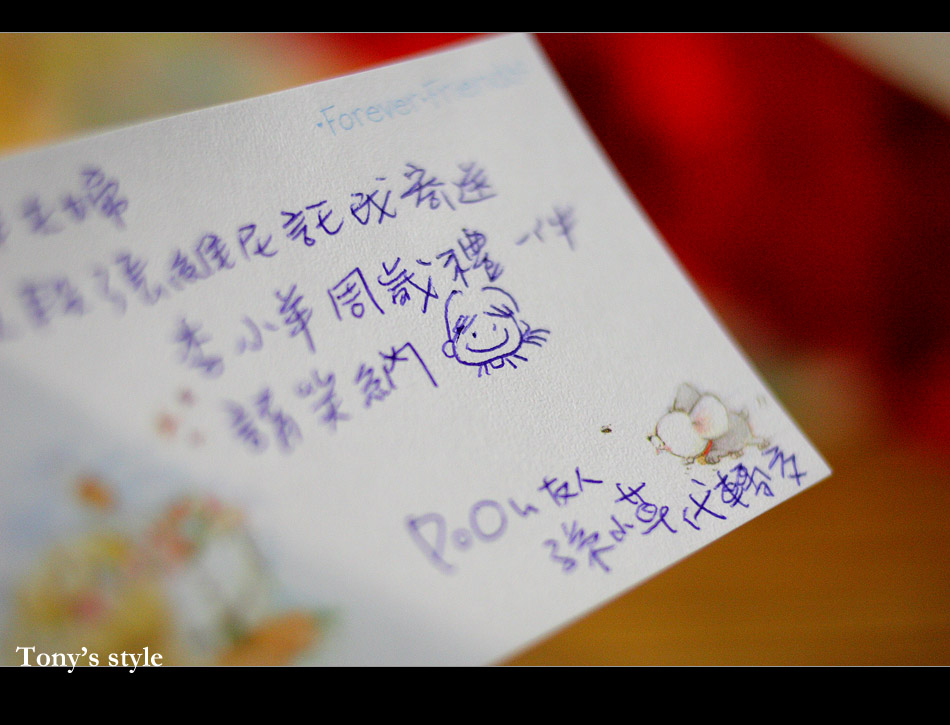 ·Forever·Friends·
夫婦
張維尼託我寄送
李小羊周歲禮一件
請笑納
POOh友人
張小草代轉交
Tony's style